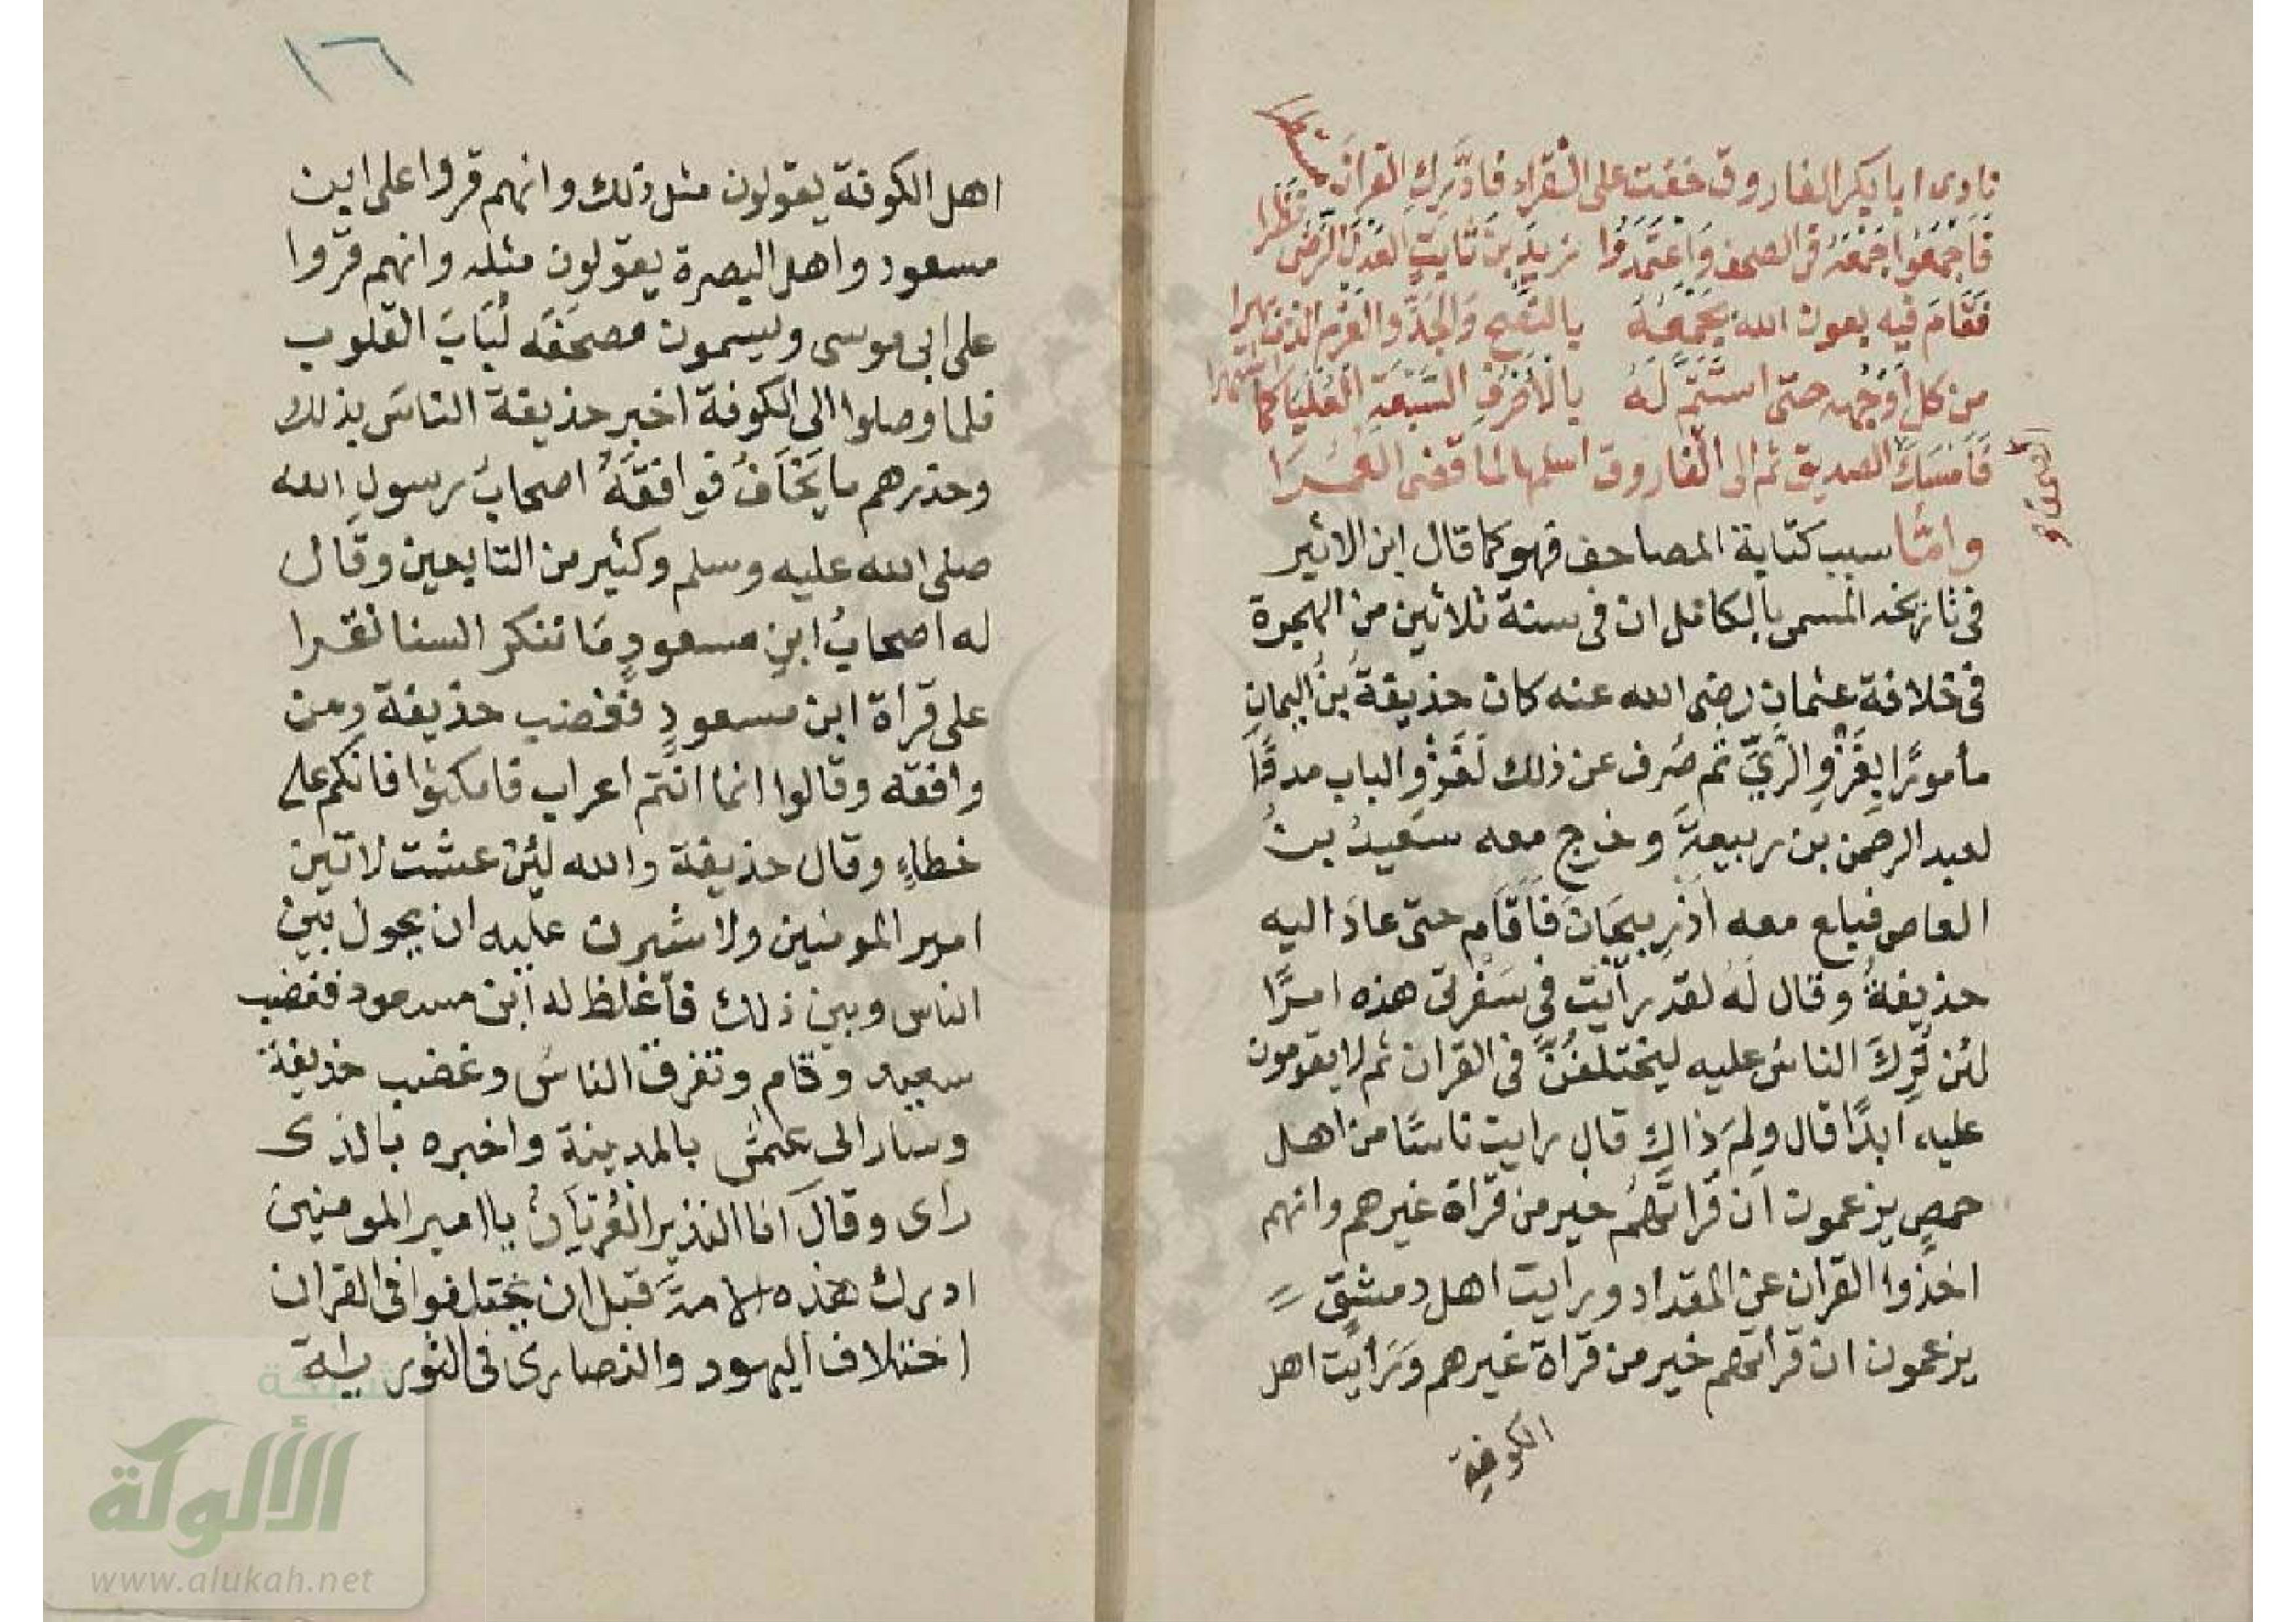 نادى ابا بكر الفاروق خفت على القراء فادّرك القرآن مستطرا
فَاجْمَعُوا جمْعَهُ فى الصحف وَاعتَمَدُوا زيدَ بنَ ثَابتٍ العَدلَ الرّضى نَظَرا
فَقَامَ فيه بعون الله يَجْمَعُهُ بالنّصح وَالجدّ والعَزم الذى بَهرا
من كل اَوْجُهِهِ حتى استَتمَّ لَهُ بالاَحْرُفِ السّبْعَةِ العُليَا كما اشتهرا
فَاَمسَكَ الصديق ثم الى الفاروق اسلمها لما قضى العُمُرا
وامّا سبب كتابة المصاحف فهو كما قال ابن الاثير
فى تاريخه المسمى بالكامل ان فى سنة ثلاثين من الهجرة
فى خلافة عثمان رضى الله عنه كان حذيفةُ بنُ اليمانِ
مأمورًا بِغَزْوِ الرَّىِّ ثم صُرف عن ذلك لغَزْوِ الباب مددًا
لعبد الرحمن بن ربيعةَ وخرج معه سَعيدُ بنُ
العاص فبلع معه اَذرِبيجَانَ فَاَقَامِ حتى عادَ اليه
حذيفةُ وقال لَهُ لقد رأيت فى سَفرتى هذه امرًا
لئن تُرِكَ الناسُ عليه ليختلفُنَّ فى القران ثم لا يقومون
عليه ابدًا قال ولِمَ ذَاكَ قال رايت ناسًا من اهل
حمص يزعمون ان قراتَهُم خير من قراة غيرهم وانهم
اخذوا القران عن المقداد ورايت اهل دمشق
يزعمون ان قرأتهم خير من قراة غيرهم وَرَأيت اهل
الكوفة
١٦
اهل الكوفة يقولون مثل ذلك وانهم قروا على ابن
مسعود واهل البصرة يقولون مثله وانهم قروا
على ابى موسى ويسمون مصحَفَه لُبَابَ القلوب
فلما وصلوا الى الكوفة اخبر حذيفة الناسَ بذلك
وحذرهم ما يَخَافُ فوافقَهُ اصحابُ رسول الله
صلى الله عليه وسلم وكثير من التابعين وقال
له اصحابُ ابنِ مسعودٍ مَا تنكر السنا نقرا
على قرأة ابن مسعودٍ فغضب حذيفة ومن
وافقه وقالوا انما انتم اعراب فامكثوا فانكم على
خطاءٍ وقال حذيفة والله لئن عشت لاتين
امير المومنين ولاشيرن عليه ان يحول بين
الناس وبين ذلك فأغلظ له ابن مسعود فغضب
سعيد وقام وتفرق الناسُ وغضب حذيفة
وسار الى عثمن بالمدينة واخبره بالذى
راى وقال انا النذير العُريَانُ يا امير المومنين
ادرك هذه الامةَ قبل ان يختلفوا فى القران
اختلاف اليهود والنصارى فى التورية
شبكة
الألوكة
www.alukah.net